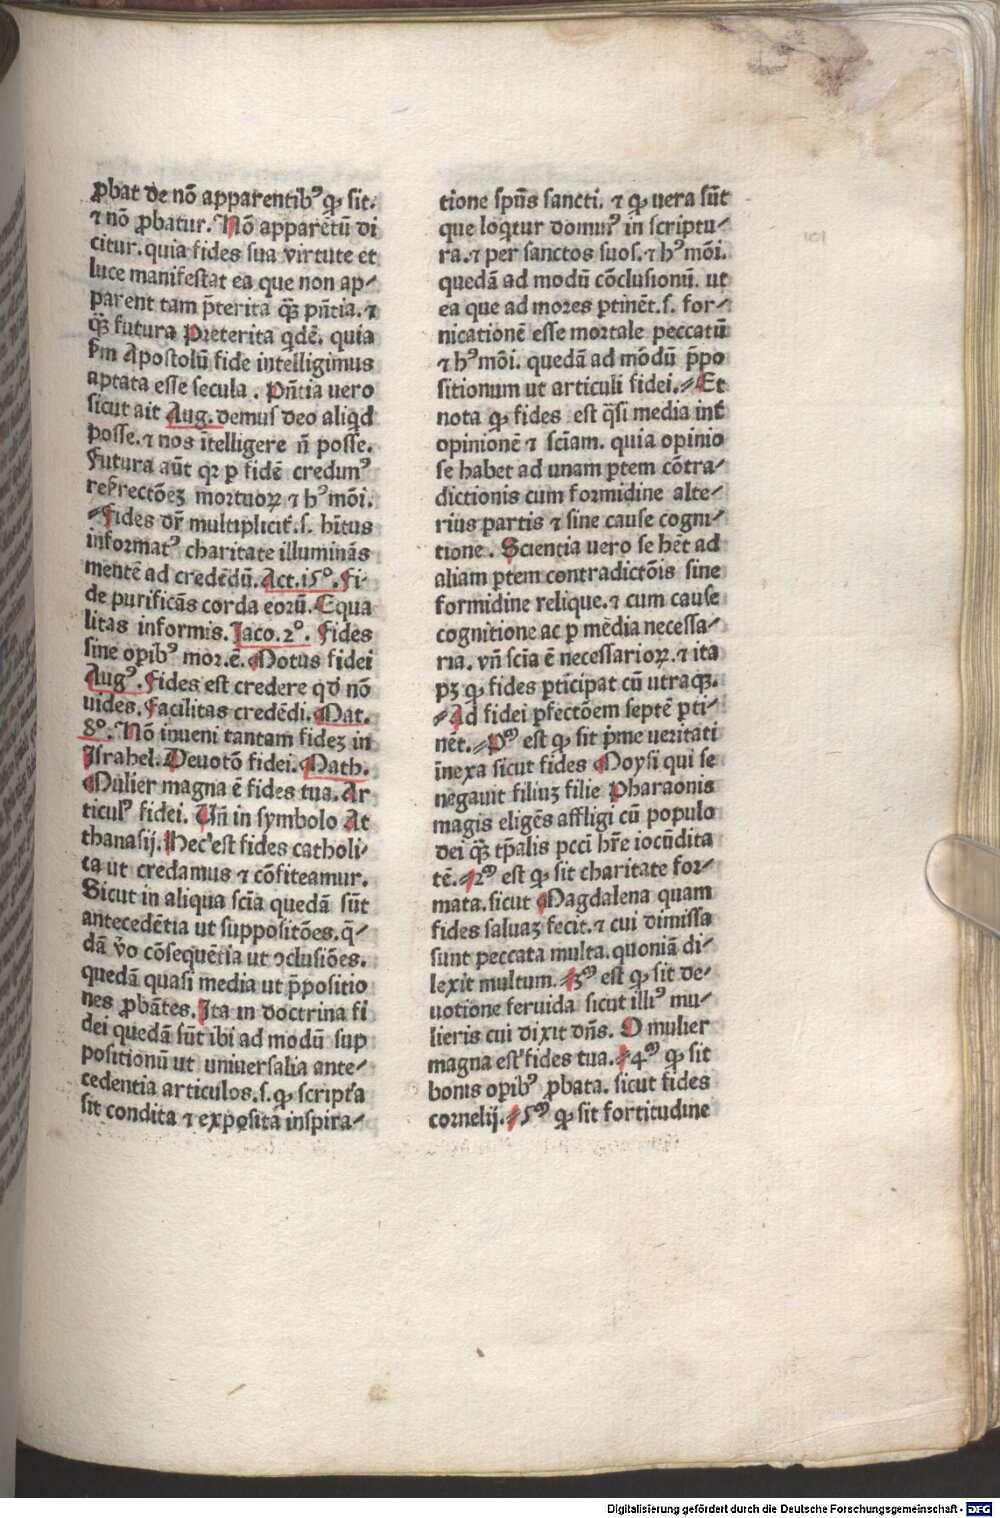 ꝓbat de nō apparentibꝰ ꝙ sit.
⁊ nō ꝓbatur. Nō apparētū di
citur. quia fides sua virtute et
luce manifestat ea que non ap⸗
parent tam p̄terita qꝫ̄ pn̄tia. ⁊
qꝫ̄ futura Preterita qdē. quia
ſm Apostolū fide intelligimus
aptata esse secula. Pn̄tia uero
sicut ait Aug. demus deo aliqd
posse. ⁊ nos ītelligere n̄ posse.
Futura aūt qꝛ ꝑ fidē credimꝰ
resˀrectōeꝫ mortuoꝝ ⁊ hꝰmōi.
⸗Fides dr̄ multiplicit̄. s. hītus
informatꝰ charitate illuminās
mentē ad credēdū. Act. 15°. Fi⸗
de purificās corda eoꝝū. Equa
litas informis. Jaco. 2°. Fides
sine oꝑibꝰ mor. ē. Motus fidei
Augꝰ. Fides est credere qd nō
uides. Facilitas credēdi. Mat.
8°. Nō inueni tantam fideꝫ in
Israhel. Deuotō fidei. Math.
Mulier magna ē fides tua. Ar
ticulꝰ fidei. Vn̄ in symbolo At
thanasij. Hec est fides catholi⸗
ca ut credamus ⁊ cōfiteamur.
Sicut in aliqua scīa quedā sūt
antecedētia ut suppositōes. q̄⸗
dā v̄o cōsequētia ut ꝯclusiōes.
quedā quasi media ut p̄positio
nes ꝓbātes. Ita in doctrina fi
dei quedā sūt ibi ad modū sup
positionū ut uniuersalia ante⸗
cedentia articulos. s. ꝙ script̄a
sit condita ⁊ exposita inspira⸗
tione spūs sancti. ⁊ ꝙ uera sūt
que loqtur dominꝰ in scriptu⸗
ra. ⁊ per sanctos suos. ⁊ hꝰmōi.
quedā ad modū cōclusionū. ut
ea que ad mores ꝑtinēt. s. for⸗
nicationē esse mortale peccatū
⁊ hꝰmōi. quedā ad mōdū p̄po
sitionum ut articuli fidei. ⸗Et
nota ꝙ fides est qsi media int̄
opinionē ⁊ scīam. quia opinio
se habet ad unam ꝑtem cōtra⸗
dictionis cum formidine alte⸗
rius partis ⁊ sine cause cogni⸗
tione. Scientia uero se hēt ad
aliam ꝑtem contradictōis sine
formidine relique. ⁊ cum cause
cognitione ac ꝑ mēdia necessa⸗
ria. vn̄ scīa ē necessarioꝝ. ⁊ ita
pꝫ ꝙ fides ꝑticipat cū utraqꝫ.
⸗Ad fidei ꝑfectōem septē ꝑti⸗
nēt. ⸗Pᵐ est ꝙ sit p̄me ueritati
īnexa sicut fides Moysi qui se
negauit filiuꝫ filie Pharaonis
magis eligēs affligi cū populo
dei qꝫ̄ tꝑalis pcci hr̄e iocūdita
tē. ⸗2ᵐ est ꝙ sit charitate for⸗
mata. sicut Magdalena quam
fides saluaꝫ fecit. ⁊ cui dimissa
sunt peccata multa. quoniā di⸗
lexit multum. ⸗3ᵐ est ꝙ sit de⸗
uotione feruida sicut illiꝰ mu⸗
lieris cui dixit dn̄s. O mulier
magna est fides tua. ⸗4ᵐ ꝙ sit
bonis oꝑibꝰ ꝓbata. sicut fides
cornelij. ⸗5ᵐ ꝙ sit fortitudine
101
Digitalisierung gefördert durch die Deutsche Forschungsgemeinschaft - DFG